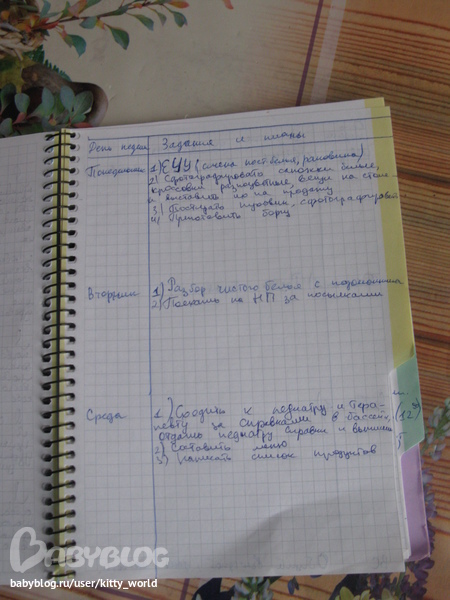 День недели Задания и планы
Понедельник 1) ЕЧУ (смена постельн., раковина)
2) Сфотографировать сапожки белые,
кроссовки разноцветные, вещи на столе
и выставить их на продажу
3) Постирать пуховик, сфотографировать
4) Приготовить борщ
Вторник 1) Разбор чистого белья с подоконника
2) Поехать на НП за посылками
Среда 1) Сходить к педиатру и тера-
певту за справками в бассейн, (12³⁰)
отдать педиатру справки и выписки
2) Составить меню
3) Написать список продуктов
BABYBLOG
babyblog.ru/user/kitty_world